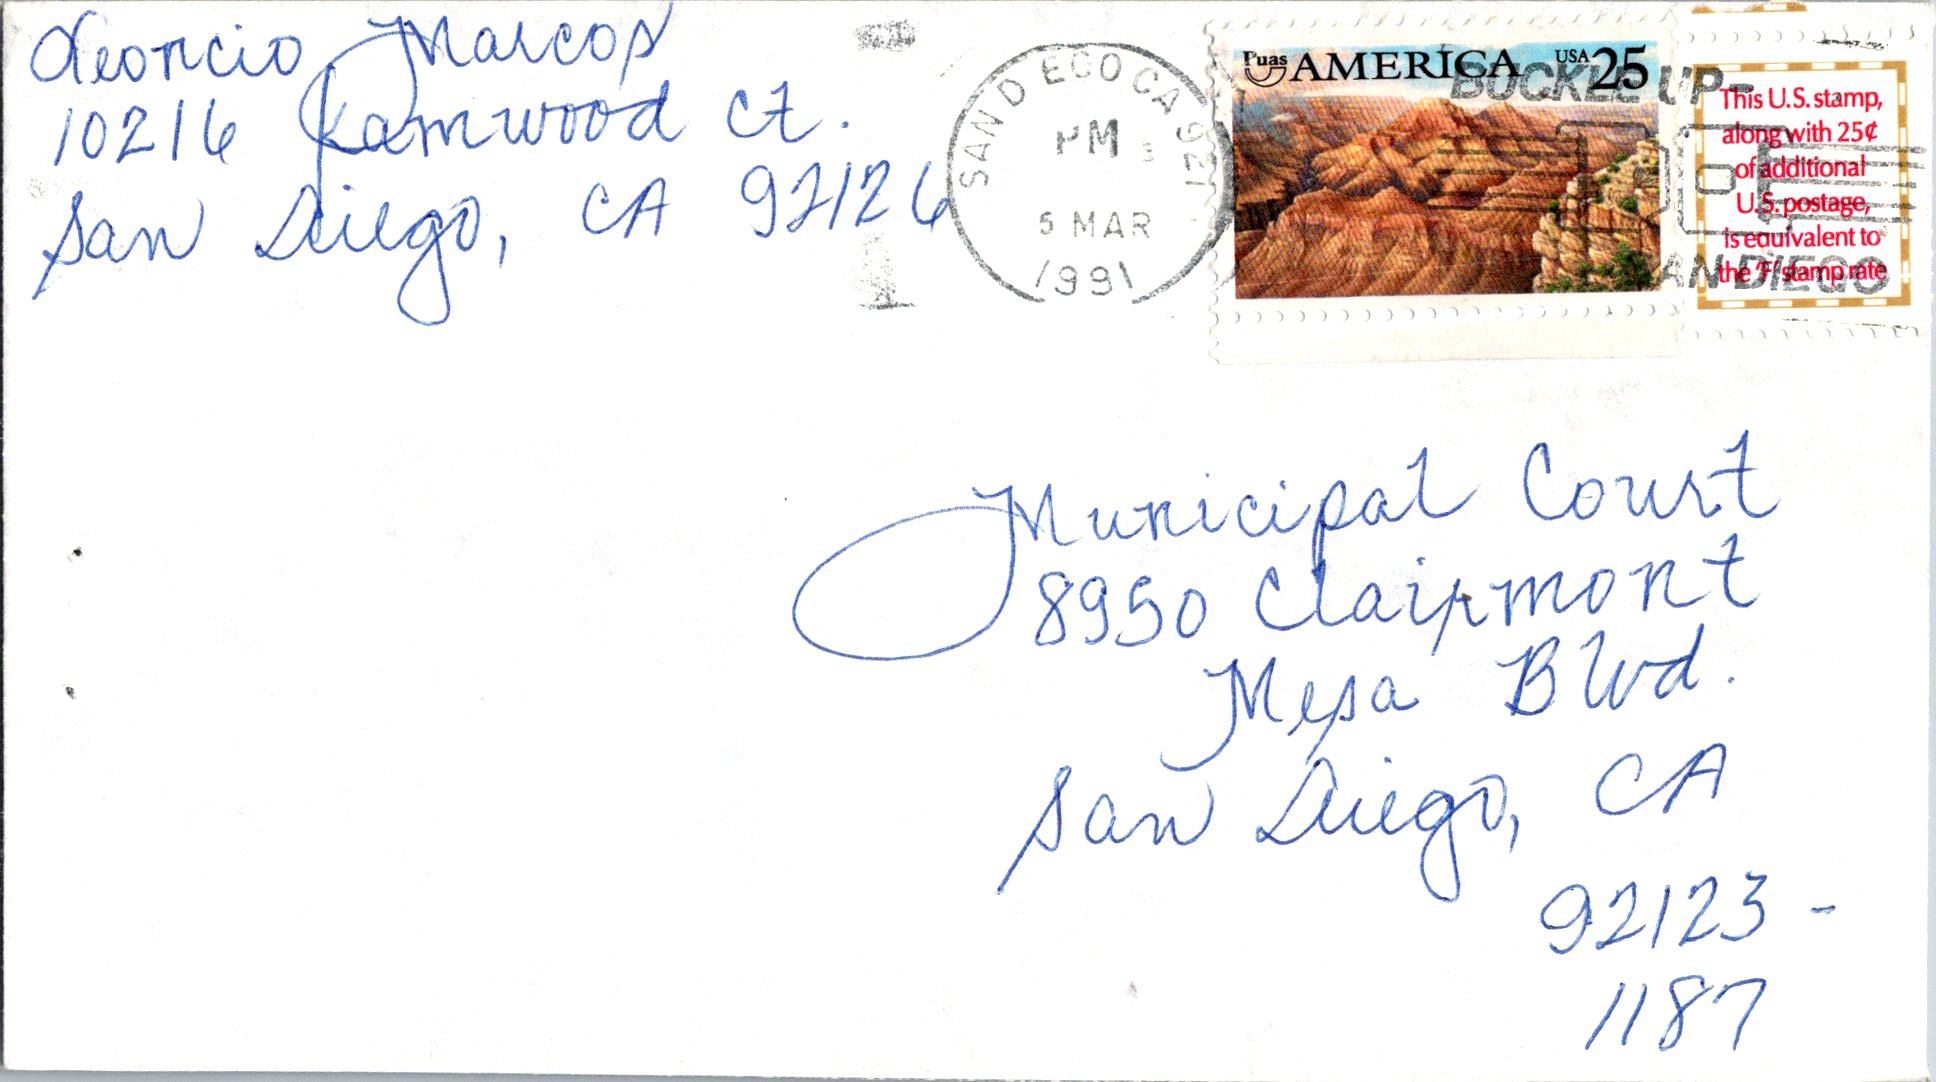 Leoncio Marcos
10216 Kamwood Ct.
San Diego, CA 92126
SAN DIEGO CA 921
PM
5 MAR
1991
PUAS AMERICA USA 25
BUCKLE UP-
SAN DIEGO
This U.S. stamp,
along with 25¢
of additional
U.S. postage,
is equivalent to
the 'F' stamp rate
Municipal Court
8950 Clairmont
Mesa Blvd.
San Diego, CA
92123-
1187